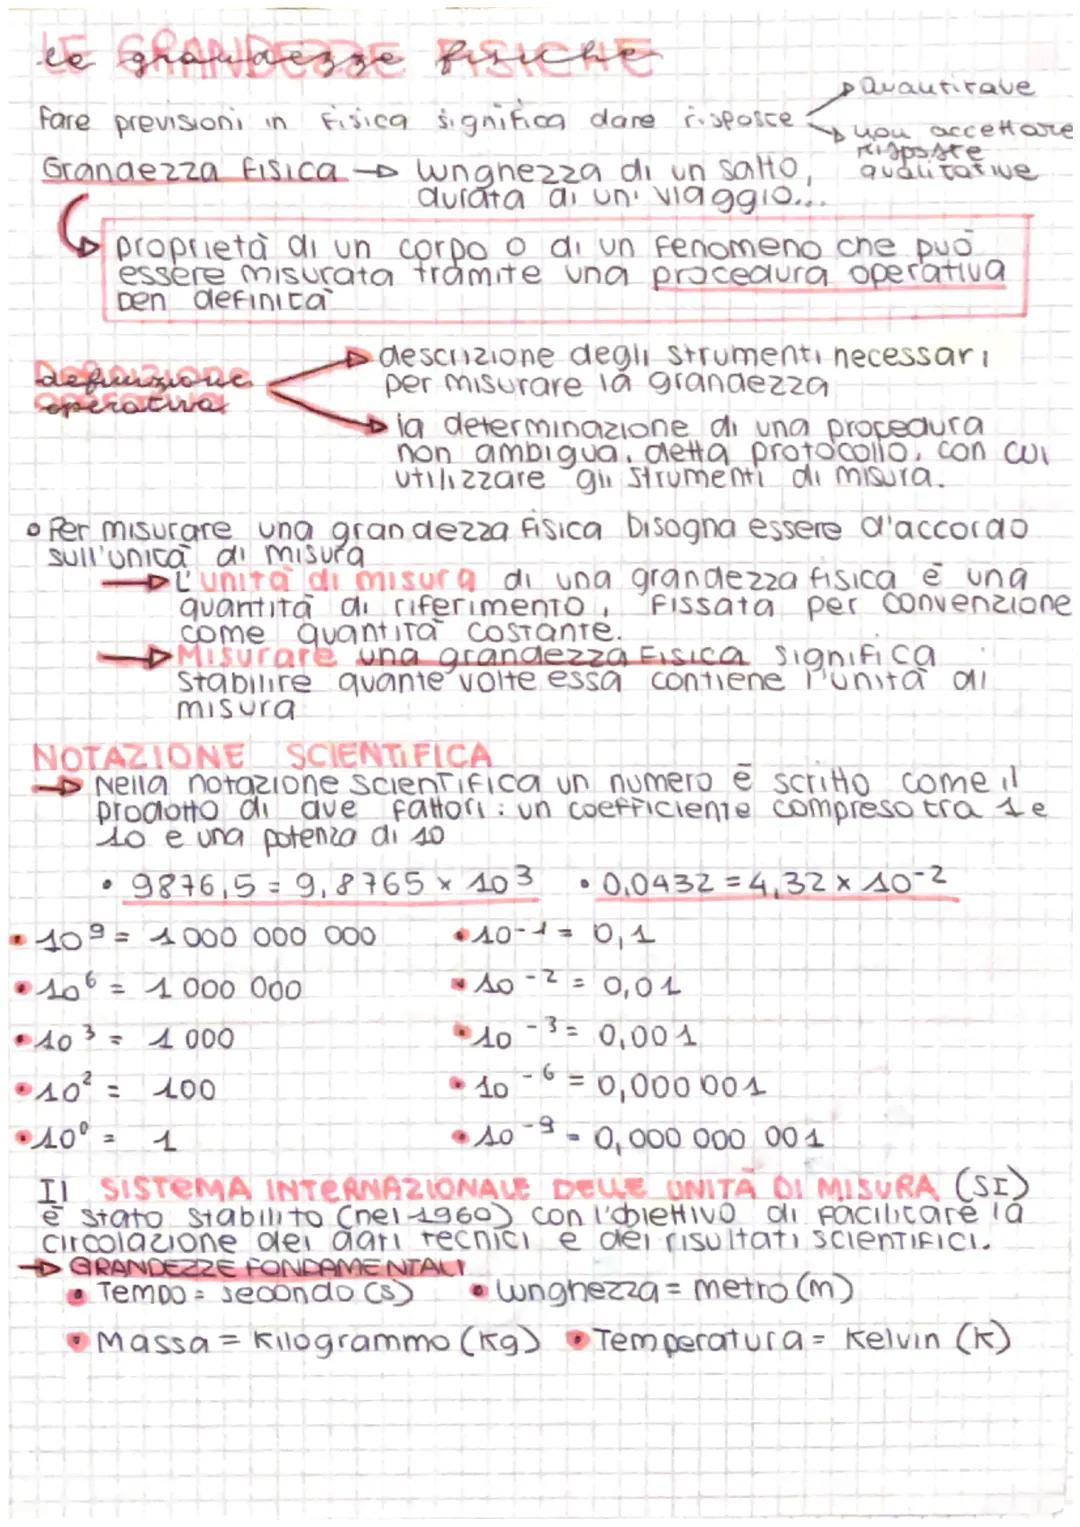 le grandezze fisiche
LE GRANDEZZE FISICHE
Fare previsioni in Fisica significa dare risposte
quantitative
non accettare
risposte
qualitative
Grandezza Fisica → lunghezza di un salto,
durata di un viaggio...
proprietà di un corpo o di un fenomeno che può
essere misurata tramite una procedura operativa
ben definita
definizione
operativa
descrizione degli strumenti necessari
per misurare la grandezza
la determinazione di una procedura
non ambigua, detta protocollo, con cui
utilizzare gli strumenti di misura.
• Per misurare una grandezza fisica bisogna essere d'accordo
sull'unità di misura
→ L'unità di misura di una grandezza fisica è una
quantità di riferimento, fissata per convenzione
come quantità costante.
→ Misurare una grandezza Fisica significa
stabilire quante volte essa contiene l'unità di
misura
NOTAZIONE SCIENTIFICA
→ Nella notazione scientifica un numero è scritto come il
prodotto di due fattori: un coefficiente compreso tra 1 e
10 e una potenza di 10
• 9876,5 = 9,8765 × 10³ • 0,0432 = 4,32 × 10⁻²
• 10⁹ = 1 000 000 000 • 10⁻¹ = 0,1
• 10⁶ = 1 000 000 • 10⁻² = 0,01
• 10³ = 1 000 • 10⁻³ = 0,001
• 10² = 100 • 10⁻⁶ = 0,000 001
• 10⁰ = 1 • 10⁻⁹ = 0,000 000 001
Il SISTEMA INTERNAZIONALE DELLE UNITÀ DI MISURA (SI)
è stato stabilito (nel 1960) con l'obiettivo di facilitare la
circolazione dei dati tecnici e dei risultati scientifici.
→ GRANDEZZE FONDAMENTALI
• Tempo = secondo (s) • lunghezza = metro (m)
• Massa = Kilogrammo (Kg) • Temperatura = Kelvin (K)